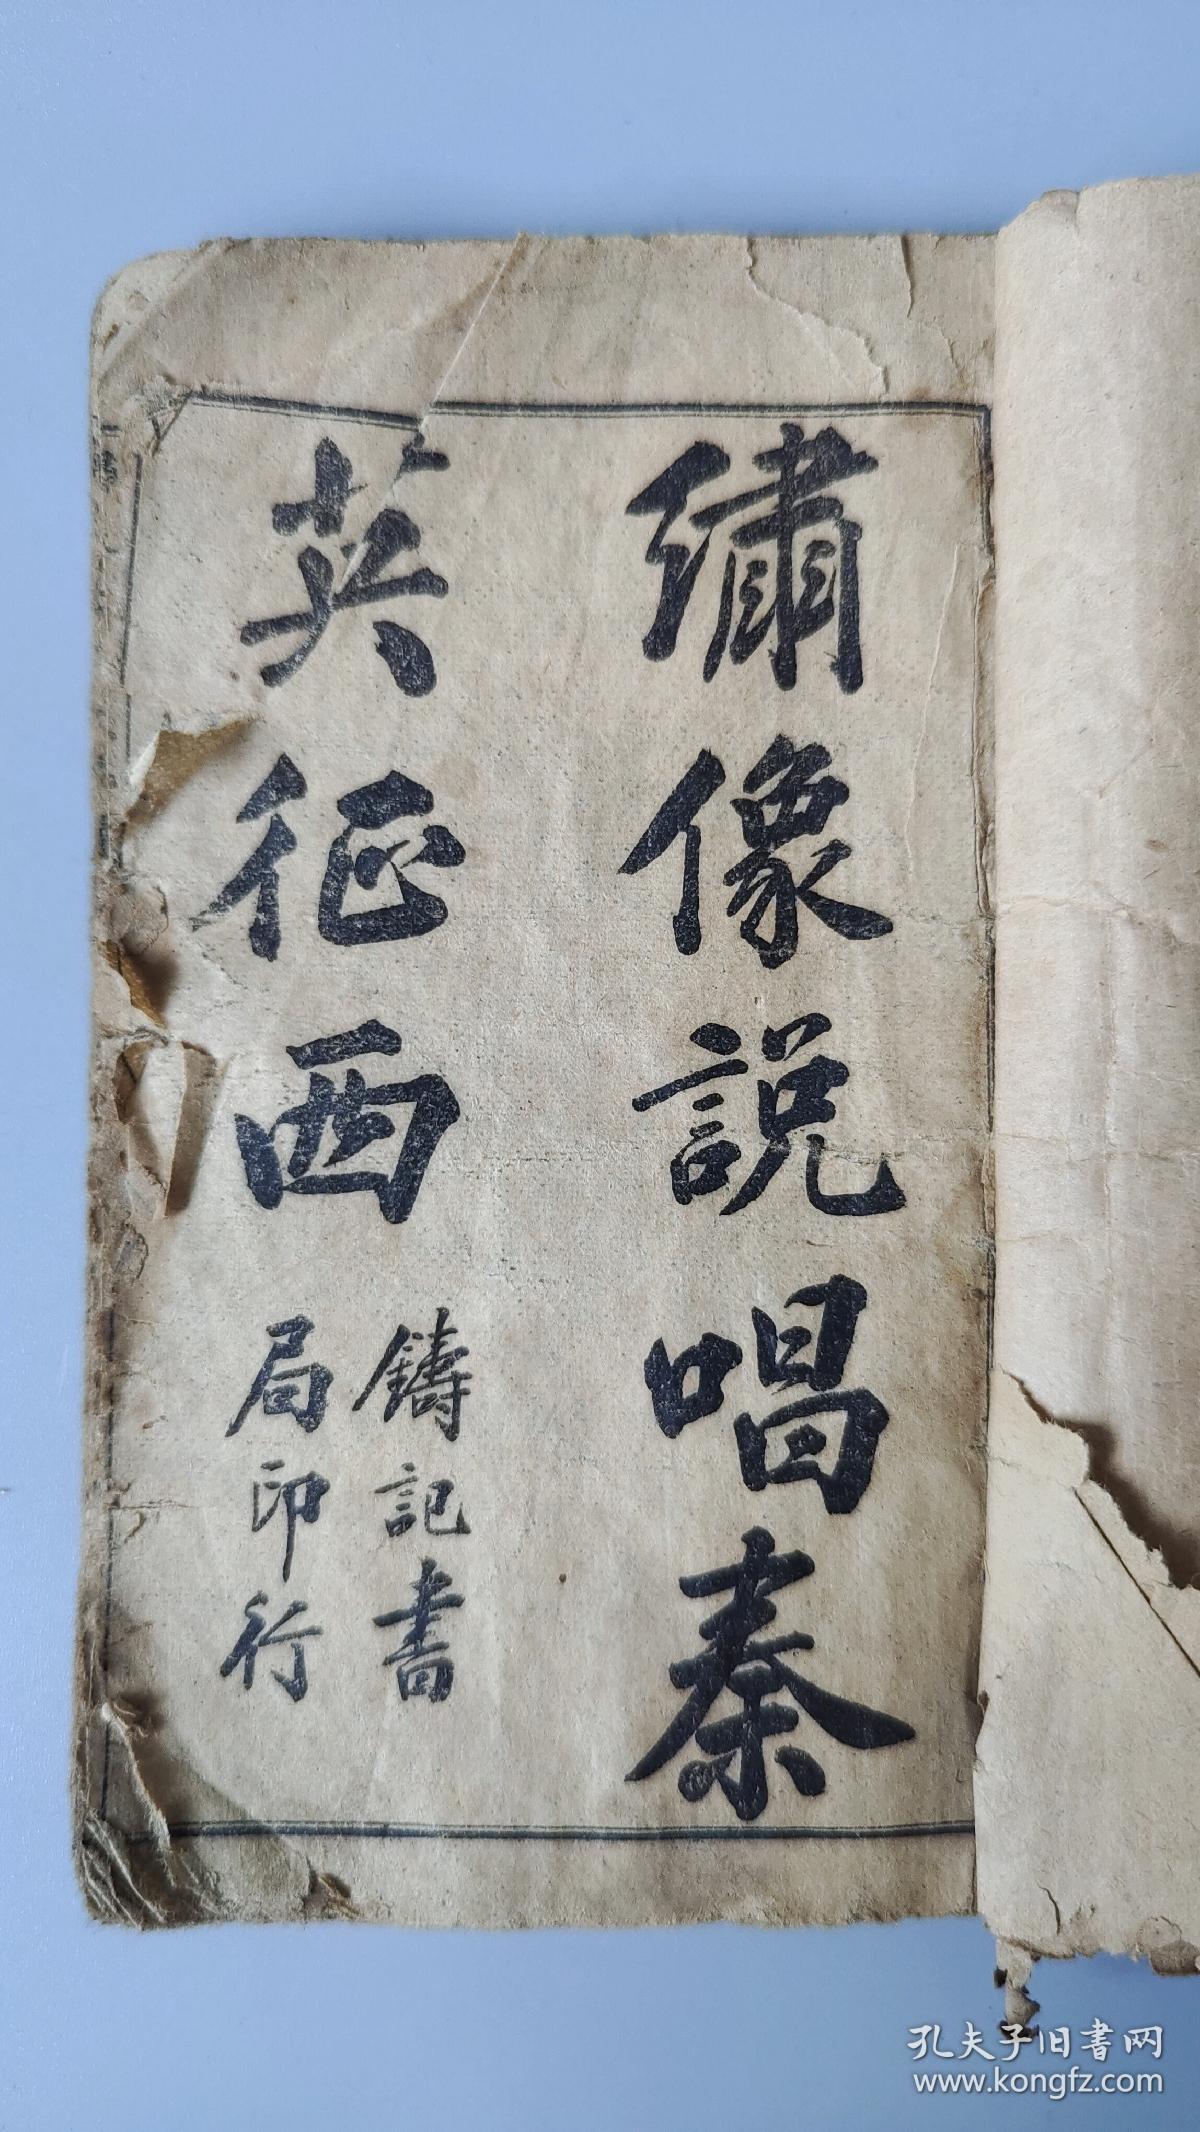 繡像說唱秦
英征西
鑄記書
局印行
孔夫子旧书网
www.kongfz.com